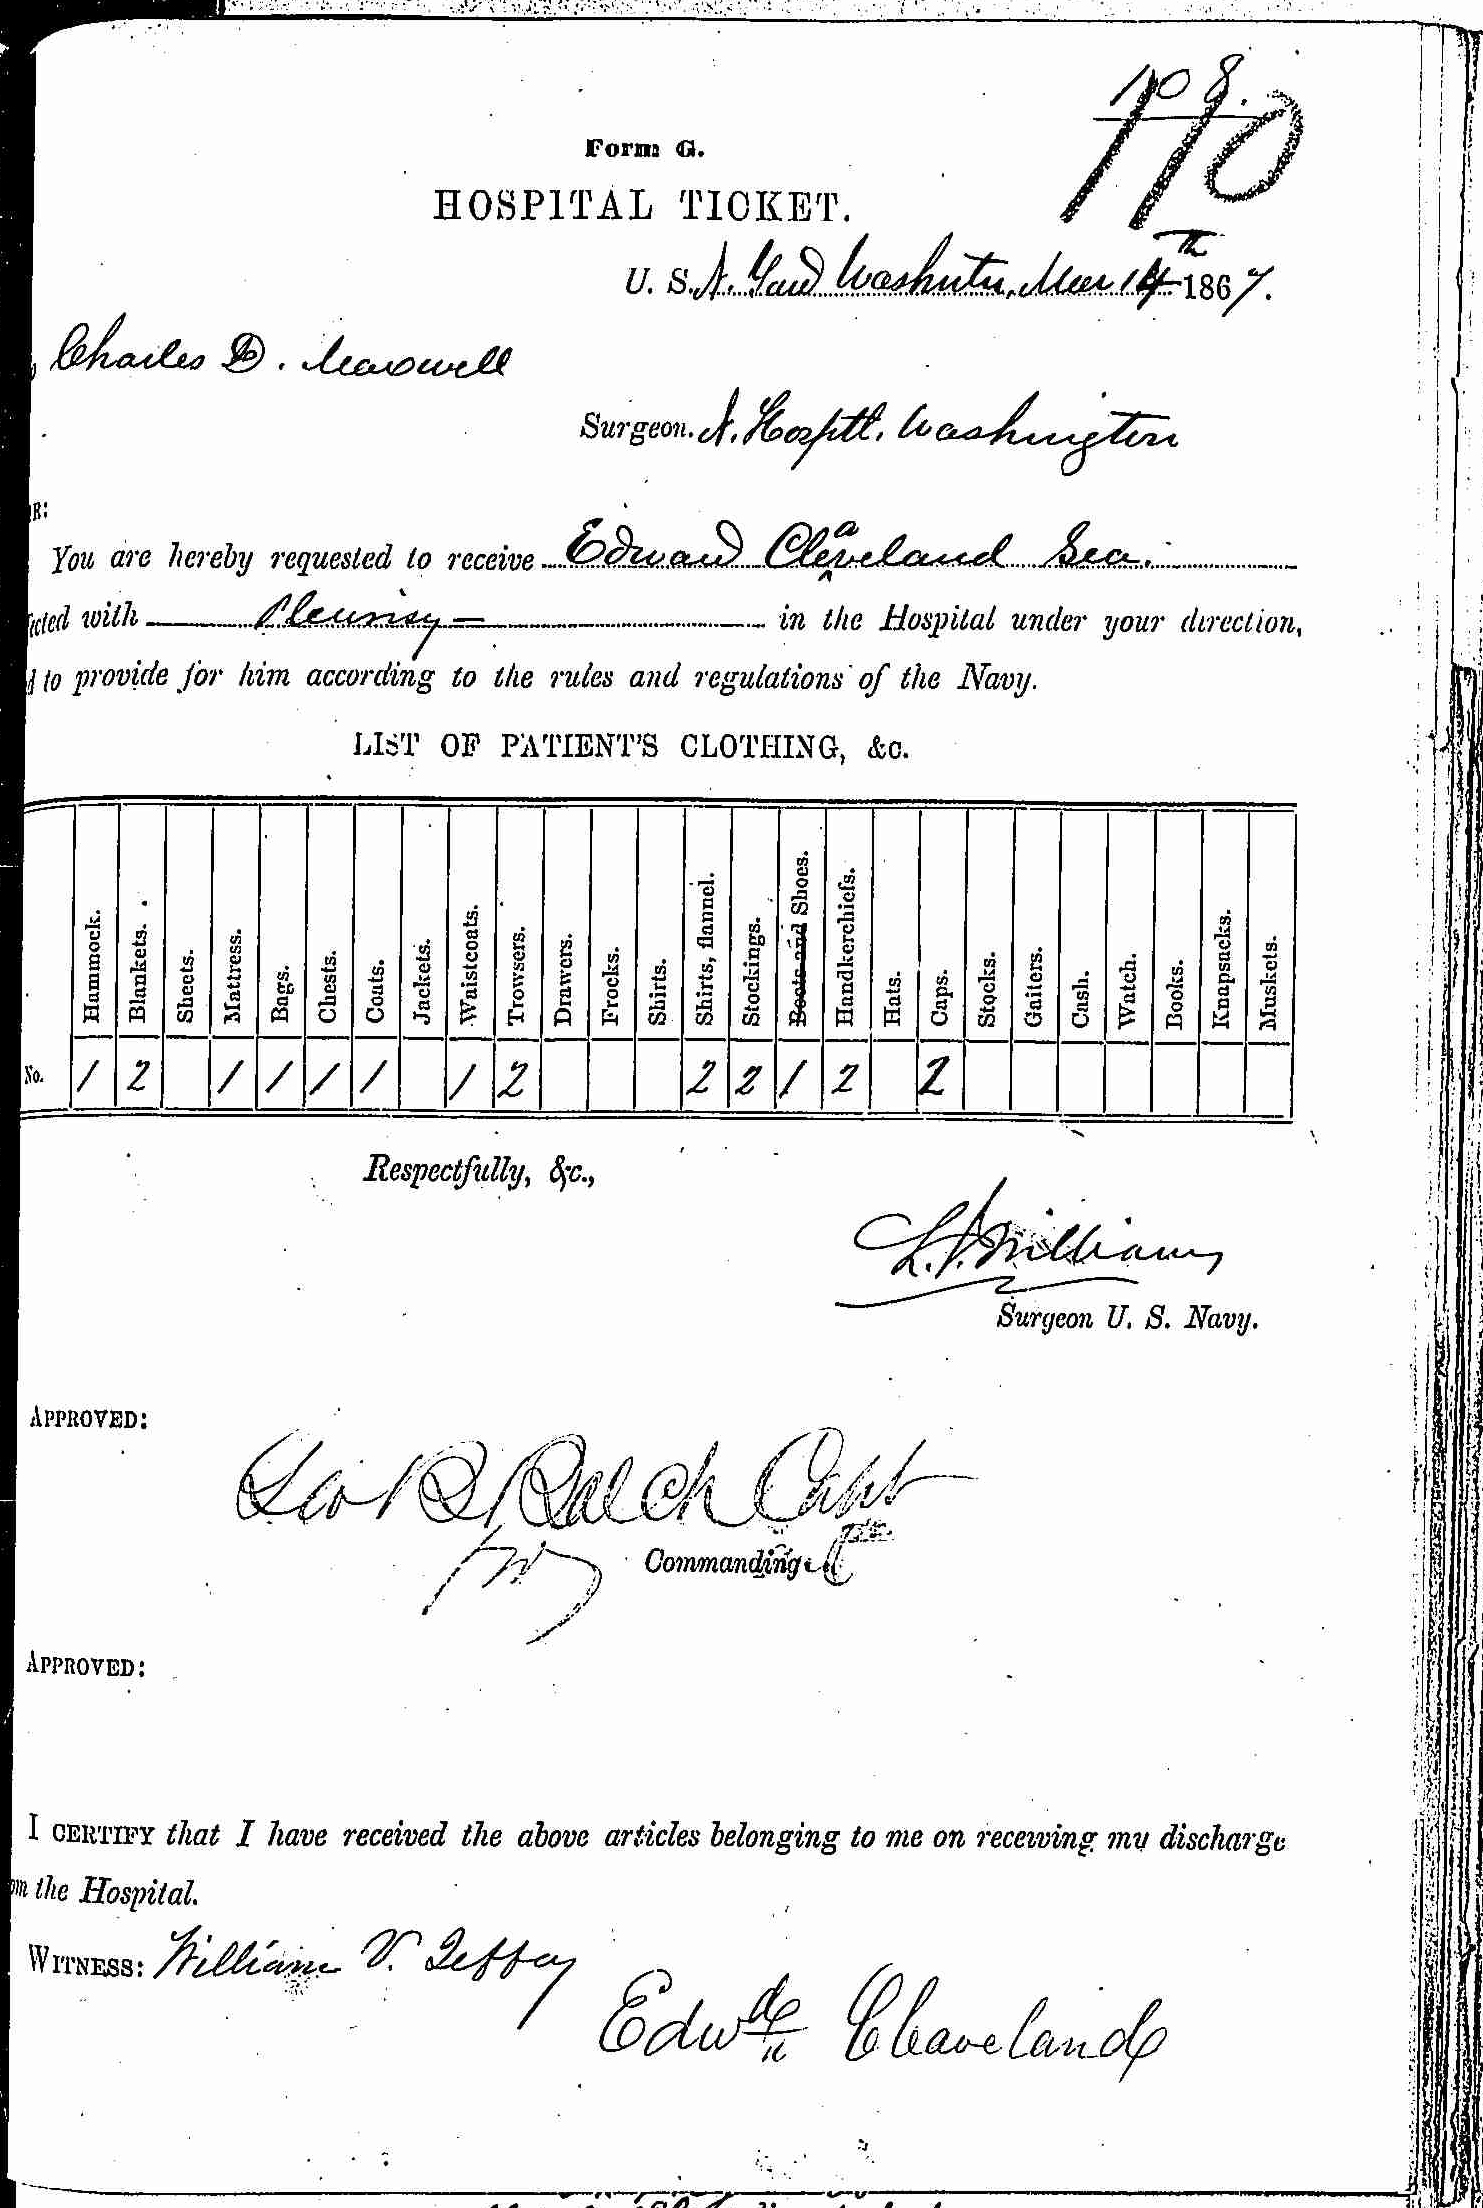 108.
110
Form G.
HOSPITAL TICKET.
U. S. N. Yard Washntn, Mar 14th 1867.
Charles D. Maxwell
Surgeon. N. Hosptl. Washington
R:
You are hereby requested to receive Edward Cleaveland Sea.
ected with Pleurisy – in the Hospital under your direction,
d to provide for him according to the rules and regulations of the Navy.
LIST OF PATIENT'S CLOTHING, &c.
Hammock. Blankets. Sheets. Mattress. Bags. Chests. Coats. Jackets. Waistcoats. Trowsers. Drawers. Frocks. Shirts. Shirts, flannel. Stockings. Boots and Shoes. Handkerchiefs. Hats. Caps. Stocks. Gaiters. Cash. Watch. Books. Knapsacks. Muskets.
No. 1 2 1 1 1 1 1 2 2 2 1 2 2
Respectfully, &c.,
Williams
Surgeon U. S. Navy.
APPROVED:
Geo B Balch Capt
Commanding
APPROVED:
I CERTIFY that I have received the above articles belonging to me on receiving my discharge
om the Hospital.
WITNESS: William V.
Edwd Cleaveland